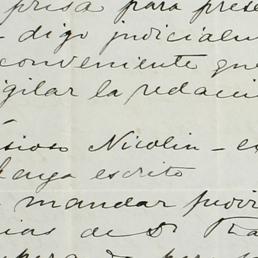 prisa para prese
- digo judicialm
conveniente que
igilar la redacci
Nicolin - e
tenga escrito
mandar judi
ias de Dr.